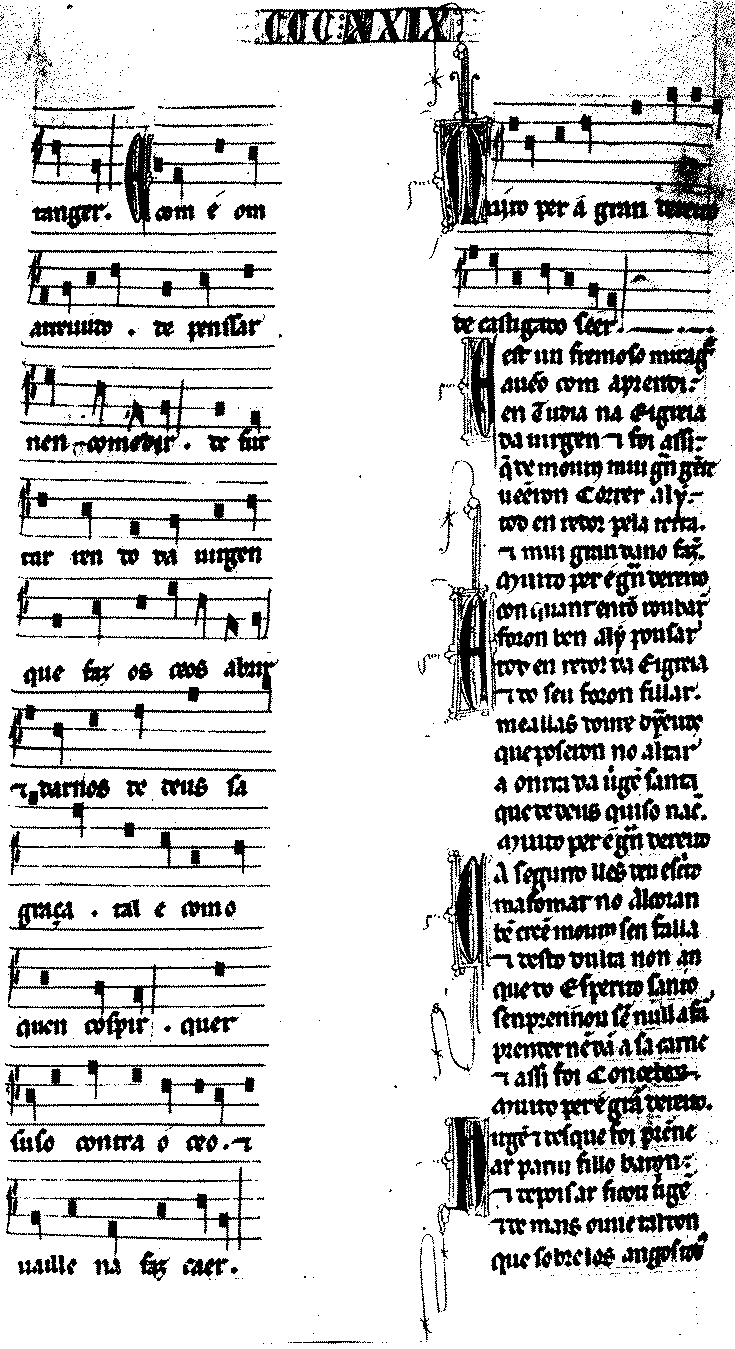 CCCXXIX
tanger. E com é om
atreuuto . de penssar
nen comedir . de fur
tar ren do da uirgen
que faz os ceos abrir
⁊ darnos de deus sa
graça . tal e como
quen cospir . quer
suso contra o ceo . ⁊
uaille na faz caer .
Muito per á gran dereito
de castigado seer .
est un fremoso mirag̃
en Tudia na Eigreia
da uirgen ⁊ foi assi
q̃ de mouros mui gñ
ueẽron Correr aly
tod en redor pela terra.
⁊ mui gran dano faz.
Muito per é gñ dereito
con quant endo roubar
foron ben aly pousar
tod en redor da Eigreia
⁊ do seu foron fillar.
meallas dome
que poseron no altar
a onrra da uigẽ santa
que de deus quiso nac̃.
Muito per é gñ dereito
A segundo lles deu escrito
mafomat no Alcoran
bẽ creẽ mouros sen falla
⁊ desto dulta non an
que do Esperito santo
senprennou sẽ null afã
prender nẽ dã a sa carne
⁊ assi foi Conceber.
Muito per é grã dereito.
uigẽ ⁊ des que foi prẽne
ar pariu fillo baron
⁊ depois ar ficou uigẽ
⁊ de mais ouue tal don
que sobre los angos todos